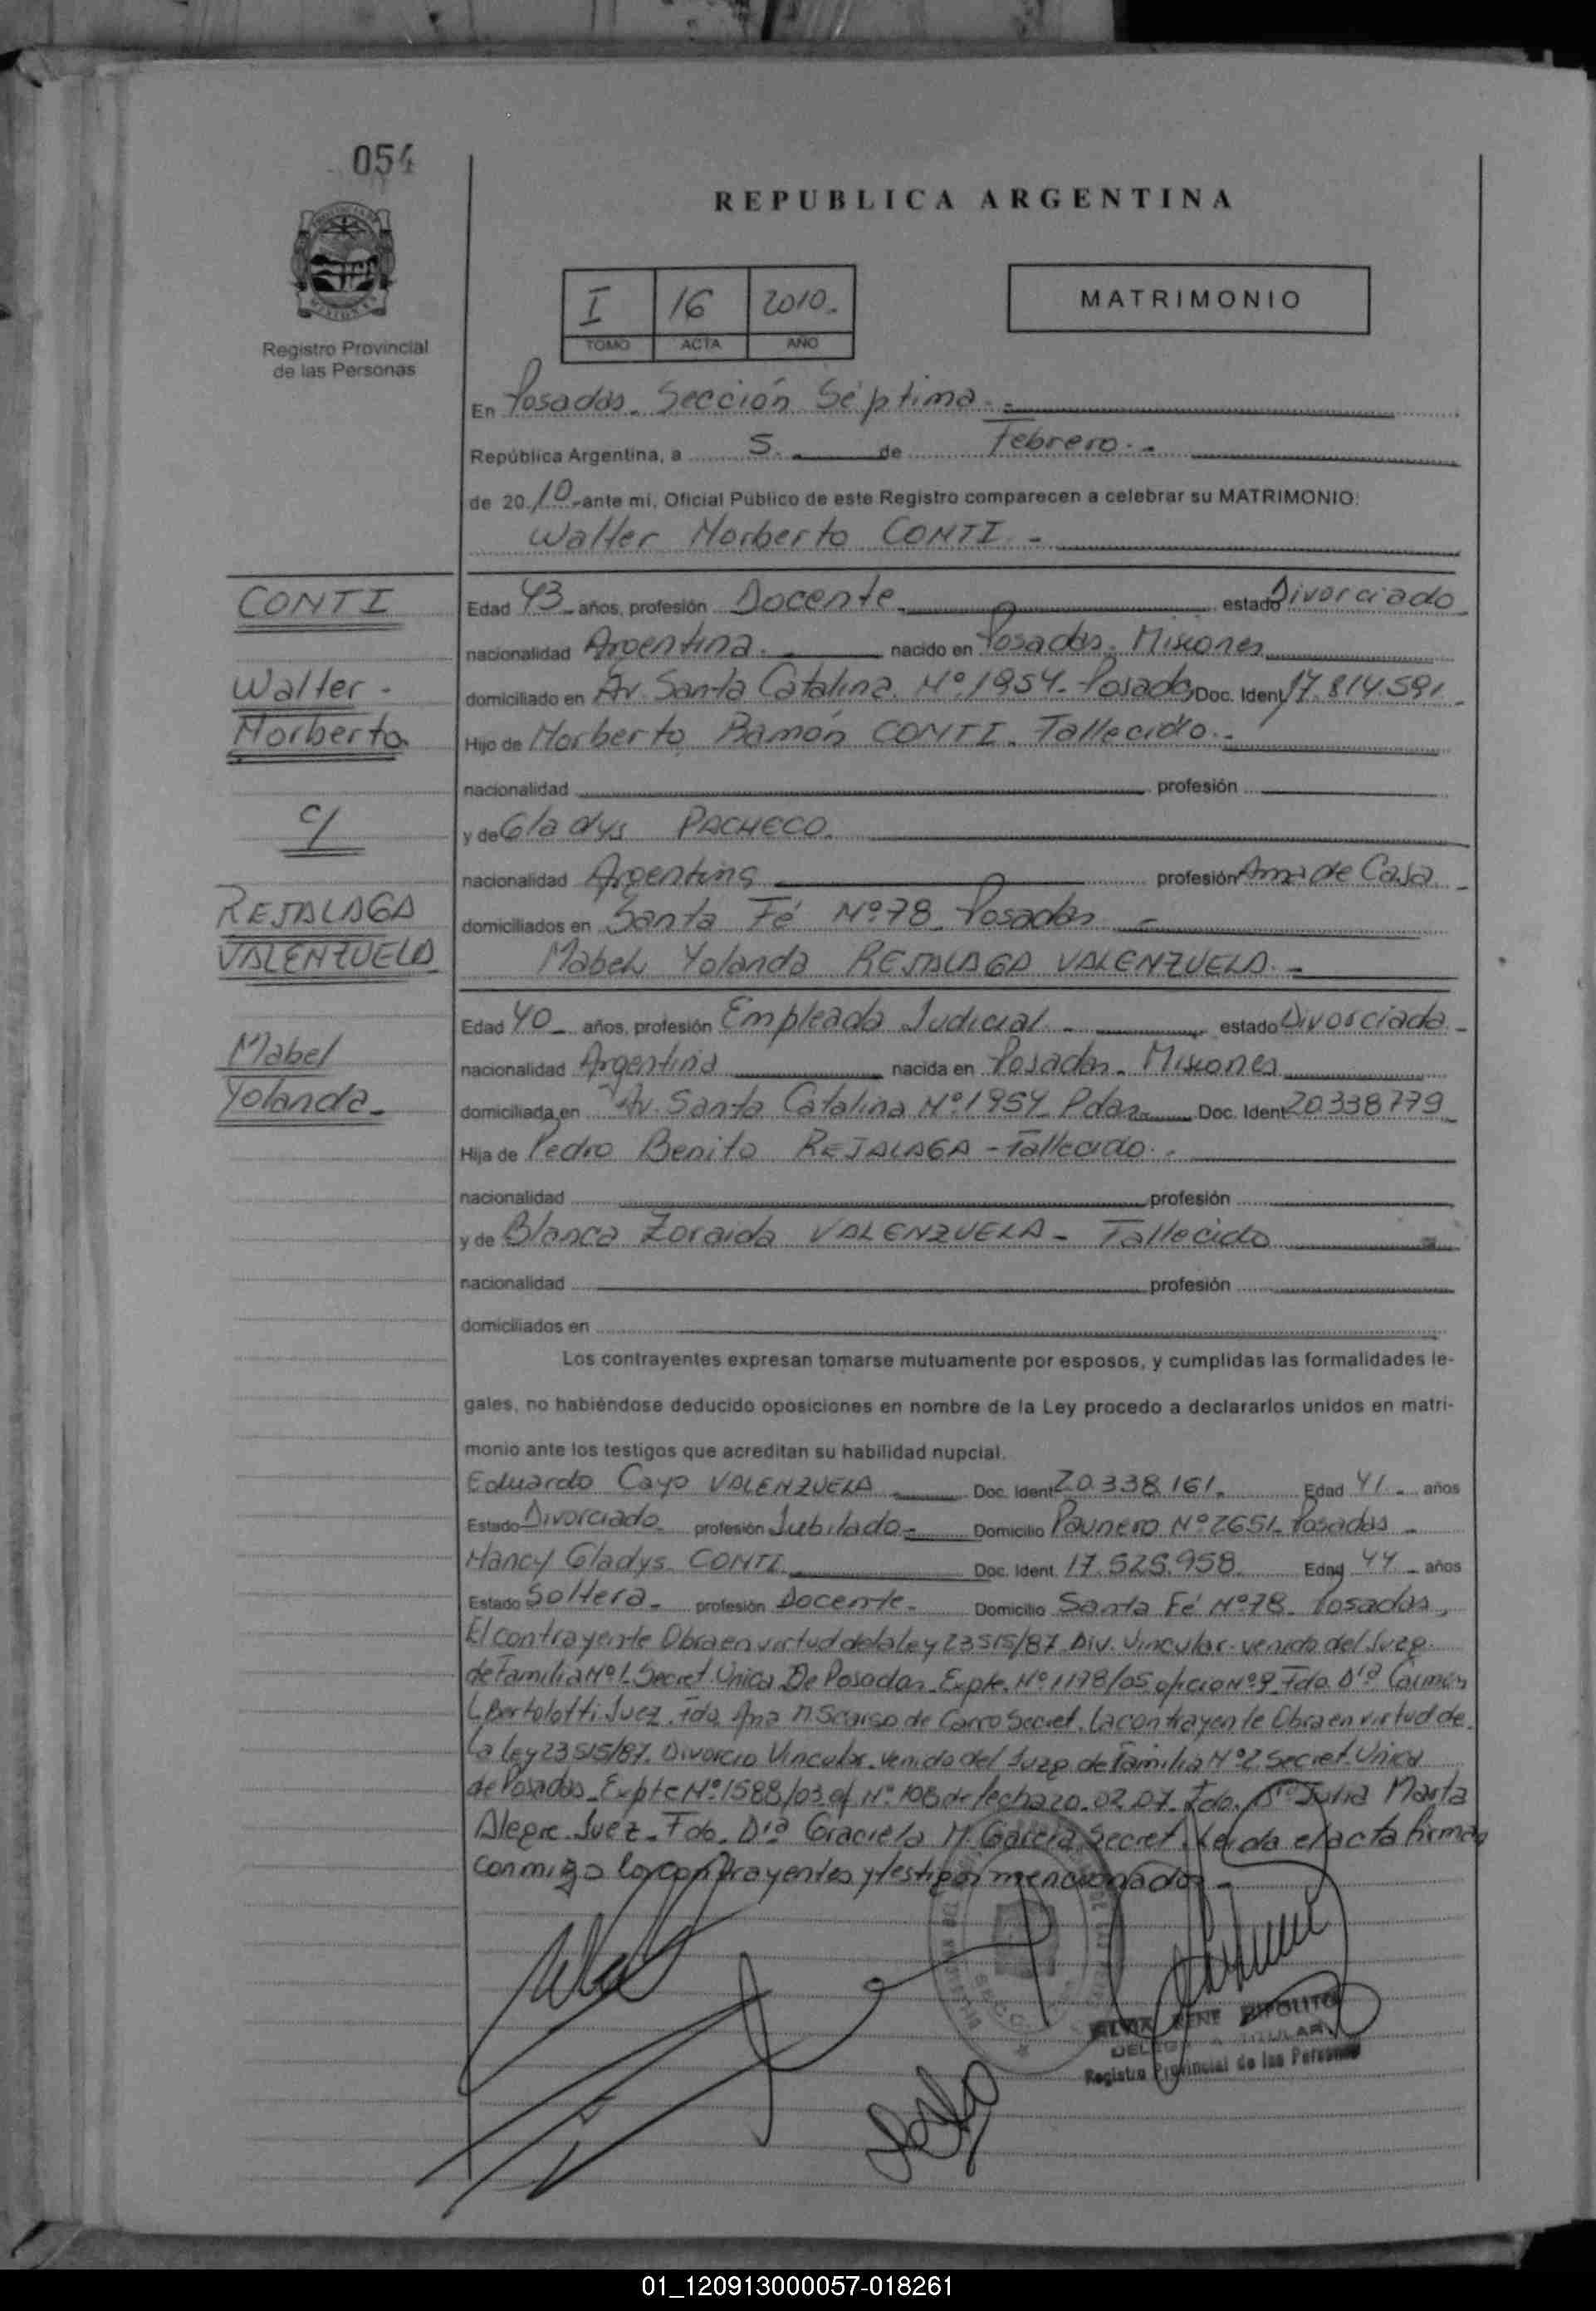 054
REPUBLICA ARGENTINA
I 16 2010.
TOMO ACTA AÑO
MATRIMONIO
Registro Provincial
de las Personas
En Posadas. Sección Séptima.-
República Argentina, a 5. de Febrero.-
de 2010 ante mi, Oficial Público de este Registro comparecen a celebrar su MATRIMONIO:
Walter Norberto CONTI.-
CONTI
Walter.
Norberto
c/
REJALAGA
VALENZUELA
Mabel
Yolanda.
Edad 43 años, profesión Docente. estado Divorciado
nacionalidad Argentina. nacido en Posadas. Misiones
domiciliado en Av. Santa Catalina. Nº 1954. Posadas Doc. Ident 17.814.591
Hijo de Norberto Ramón CONTI. Fallecido.-
nacionalidad profesión
y de Gladys PACHECO.
nacionalidad Argentina profesión Ama de Casa
domiciliados en Santa Fé Nº 78. Posadas
Mabel Yolanda REJALAGA VALENZUELA.-
Edad 40 años, profesión Empleada Judicial estado Divorciada
nacionalidad Argentina nacida en Posadas. Misiones
domiciliada en Av. Santa Catalina Nº 1954 Pdas. Doc. Ident 20338779
Hija de Pedro Benito REJALAGA - Fallecido.
nacionalidad profesión
y de Blanca Zoraida VALENZUELA - Fallecido
nacionalidad profesión
domiciliados en
Los contrayentes expresan tomarse mutuamente por esposos, y cumplidas las formalidades le-
gales, no habiéndose deducido oposiciones en nombre de la Ley procedo a declararlos unidos en matri-
monio ante los testigos que acreditan su habilidad nupcial.
Eduardo Cayo VALENZUELA Doc. Ident 20.338.161. Edad 41 años
Estado Divorciado profesión Jubilado Domicilio Paunero Nº 2651 Posadas
Nancy Gladys CONTI Doc. Ident. 17.525.958. Edad 44 años
Estado Soltera. profesión Docente. Domicilio Santa Fé Nº 78. Posadas.
El contrayente Obra en virtud de la ley 23515/87 Div. Vincular. venido del Juzg.
de Familia Nº 1. Secret. Unica De Posadas. Expte. Nº 1178/05 oficio Nº 9 Fdo. Dra Carmen
L Bertolotti. Juez. Fdo. Ana de Carro Secret. La contrayente Obra en virtud de
La ley 23515/87. Divorcio Vincular. venido del Juzg. de Familia Nº 2 Secret. Unica
de Posadas. Expte Nº 1588/03 of Nº 108 de fecha 20.02.07. Fdo. Julia Marta
Alegre. Juez. Fdo. Dra Graciela M. Garcia Secret. Leida el acta firman
conmigo los contrayentes y testigos mencionados.-
RENE HIPOLITO
TITULAR
Registro Provincial de las Personas
01_120913000057-018261